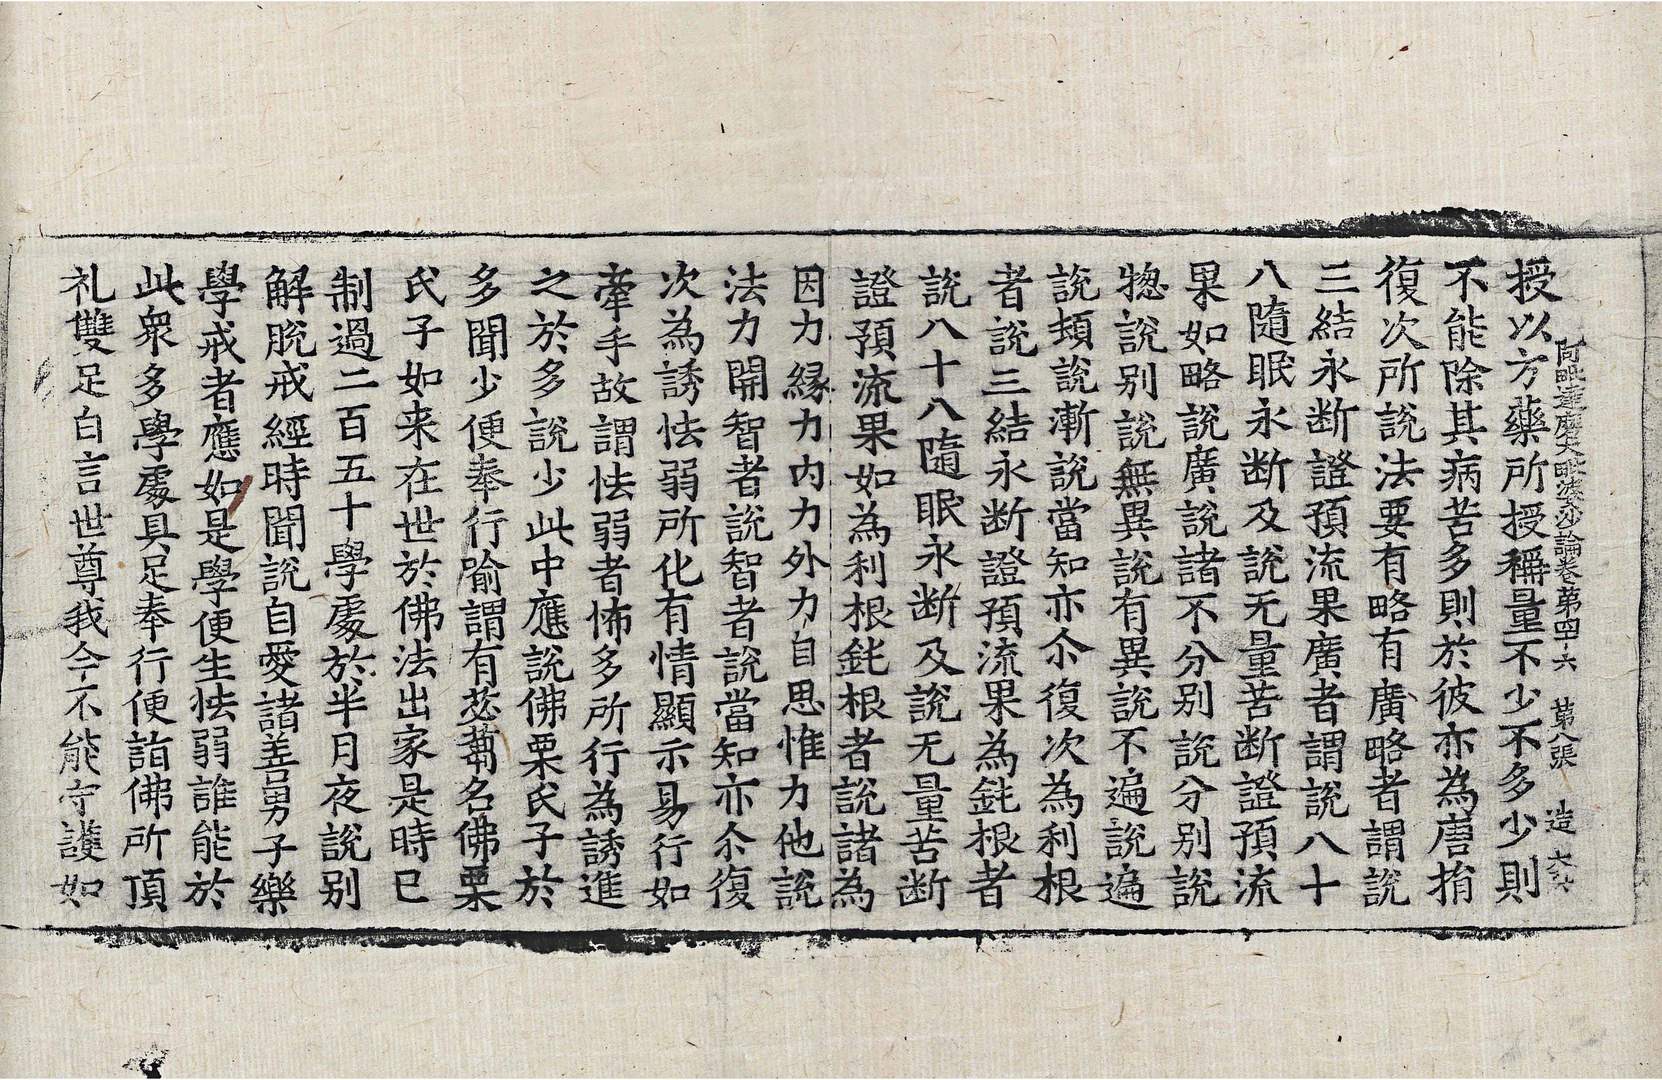 阿毗達磨大毗婆沙論卷第四十六 第八張 造
授以方藥所授稱量不少不多少則
不能除其病苦多則於彼亦為唐捐
復次所說法要有略有廣略者謂說
三結永断證預流果廣者謂說八十
八隨眠永断及說无量苦断證預流
果如略說廣說諸不分別說分別說
揔說別說無異說有異說不遍說遍
說頓說漸說當知亦尒復次為利根
者說三結永断證預流果為鈍根者
說八十八隨眠永断及說无量苦断
證預流果如為利根鈍根者說諸為
因力緣力內力外力自思惟力他說
法力開智者說智者說當知亦尒復
次為誘怯弱所化有情顯示易行如
牽手故謂怯弱者怖多所行為誘進
之於多說少此中應說佛栗氏子於
多聞少便奉行喻謂有苾蒭名佛栗
氏子如来在世於佛法出家是時已
制過二百五十學處於半月夜說別
解脫戒經時聞說自愛諸善男子樂
學戒者應如是學便生怯弱誰能於
此衆多學處具足奉行便詣佛所頂
礼雙足白言世尊我今不能守護如